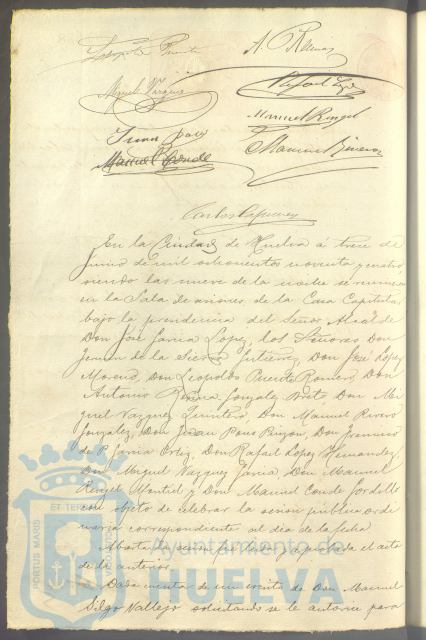 Leopoldo Puente
A. Reina
Miguel Vázquez
Rafael López
Manuel Rengel
Juan Pons
Manuel Conde
Manuel Rivero
Carlos
En la Ciudad de Huelva á trece de
Junio de mil ochocientos noventa y cuatro
siendo las nueve de la noche se reunieron
en la Sala de sesiones de la Casa Capitular
bajo la presidencia del Señor Alcalde
Don José Garcia Lopez, los Señores Don
de la Sierra Gutierrez, Don José Lopez
Moreno, Don Leopoldo Puente Romero, Don
Antonio Reina Gonzalez Don Mi
guel Vazquez Quintero Don Manuel Rivero
Gonzalez, Don Juan Pons Pinzon, Don Francisco
de P. Garcia Ortiz, Don Rafael Lopez Hernandez
Don Miguel Vazquez Garcia Don Manuel
Rengel Montiel y Don Manuel Conde Gordillo
con objeto de celebrar la sesion publica ordi
naria correspondiente al dia de la fecha
Abierta la sesion fue leida y aprobada el acta
de la anterior
Dada cuenta de un escrito de Don Manuel
Silgo Vallejo solicitando se le autorice para
PORTUS MARIS ET TERRAE
Ayuntamiento de
HUELVA